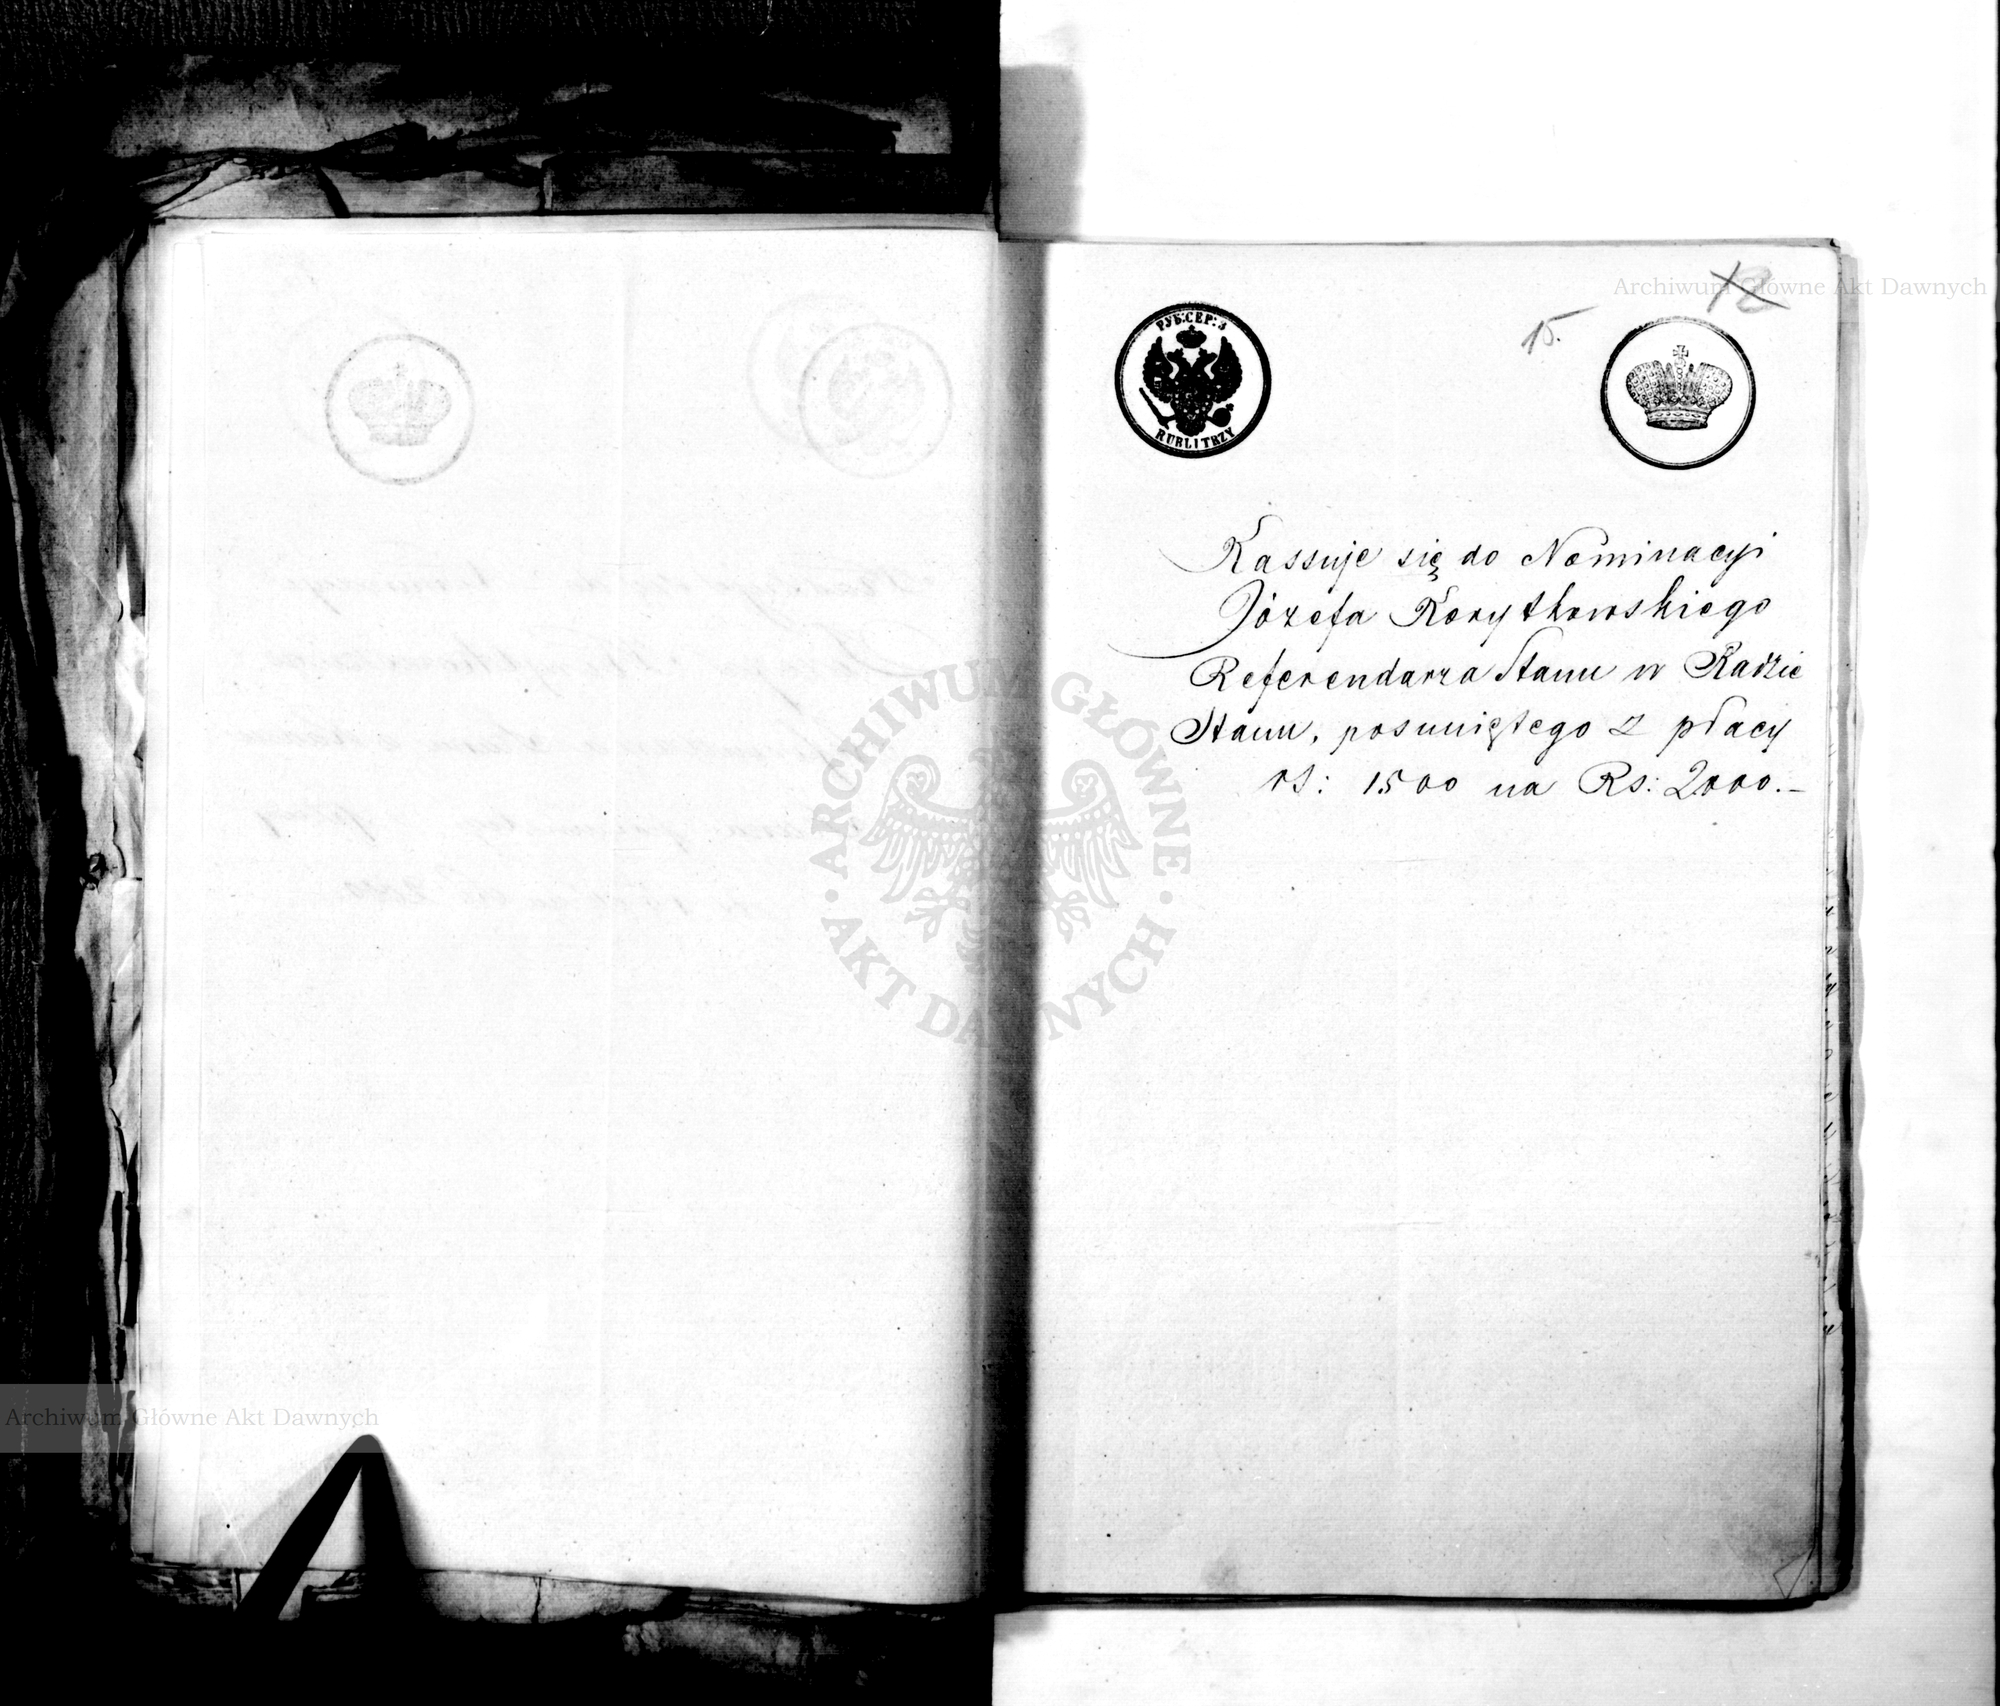 Archiwum Główne Akt Dawnych
15.
РУБ:СЕР: 3
RUBLI TRZY
Kassuje się do Nominacyi
Józefa Korytkowskiego
Referendarza Stanu w Radzie
Stanu, posuniętego z płacy
rs: 1500 na Rs: 2000.–
ARCHIWUM GŁÓWNE
AKT DAWNYCH
Archiwum Główne Akt Dawnych